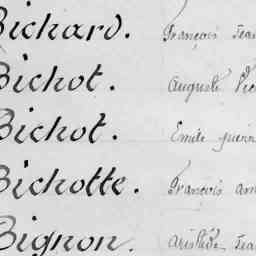 Bichard. François Jean
Bichot. Auguste
Bichot. Emile pierre
Bichotte. François
Bignon. aristide Jean